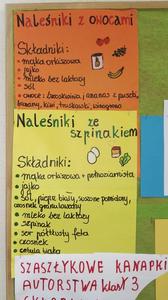 Naleśniki z owocami
Składniki:
• mąka orkiszowa
• jajko
• mleko bez laktozy
• sól
• owoce: brzoskwinia, ananas z puszki,
banany, kiwi, truskawki, winogrona
Naleśniki ze
szpinakiem
Składniki:
• mąka orkiszowa + pełnoziarnista
• jajka
• sól, pieprz biały, suszone pomidory,
czosnek granulowany
• mleko bez laktozy
• szpinak
• ser półtłusty feta
• czosnek
• cebula biała
SZASZŁYKOWE KANAPKI
AUTORSTWA KLASY 3